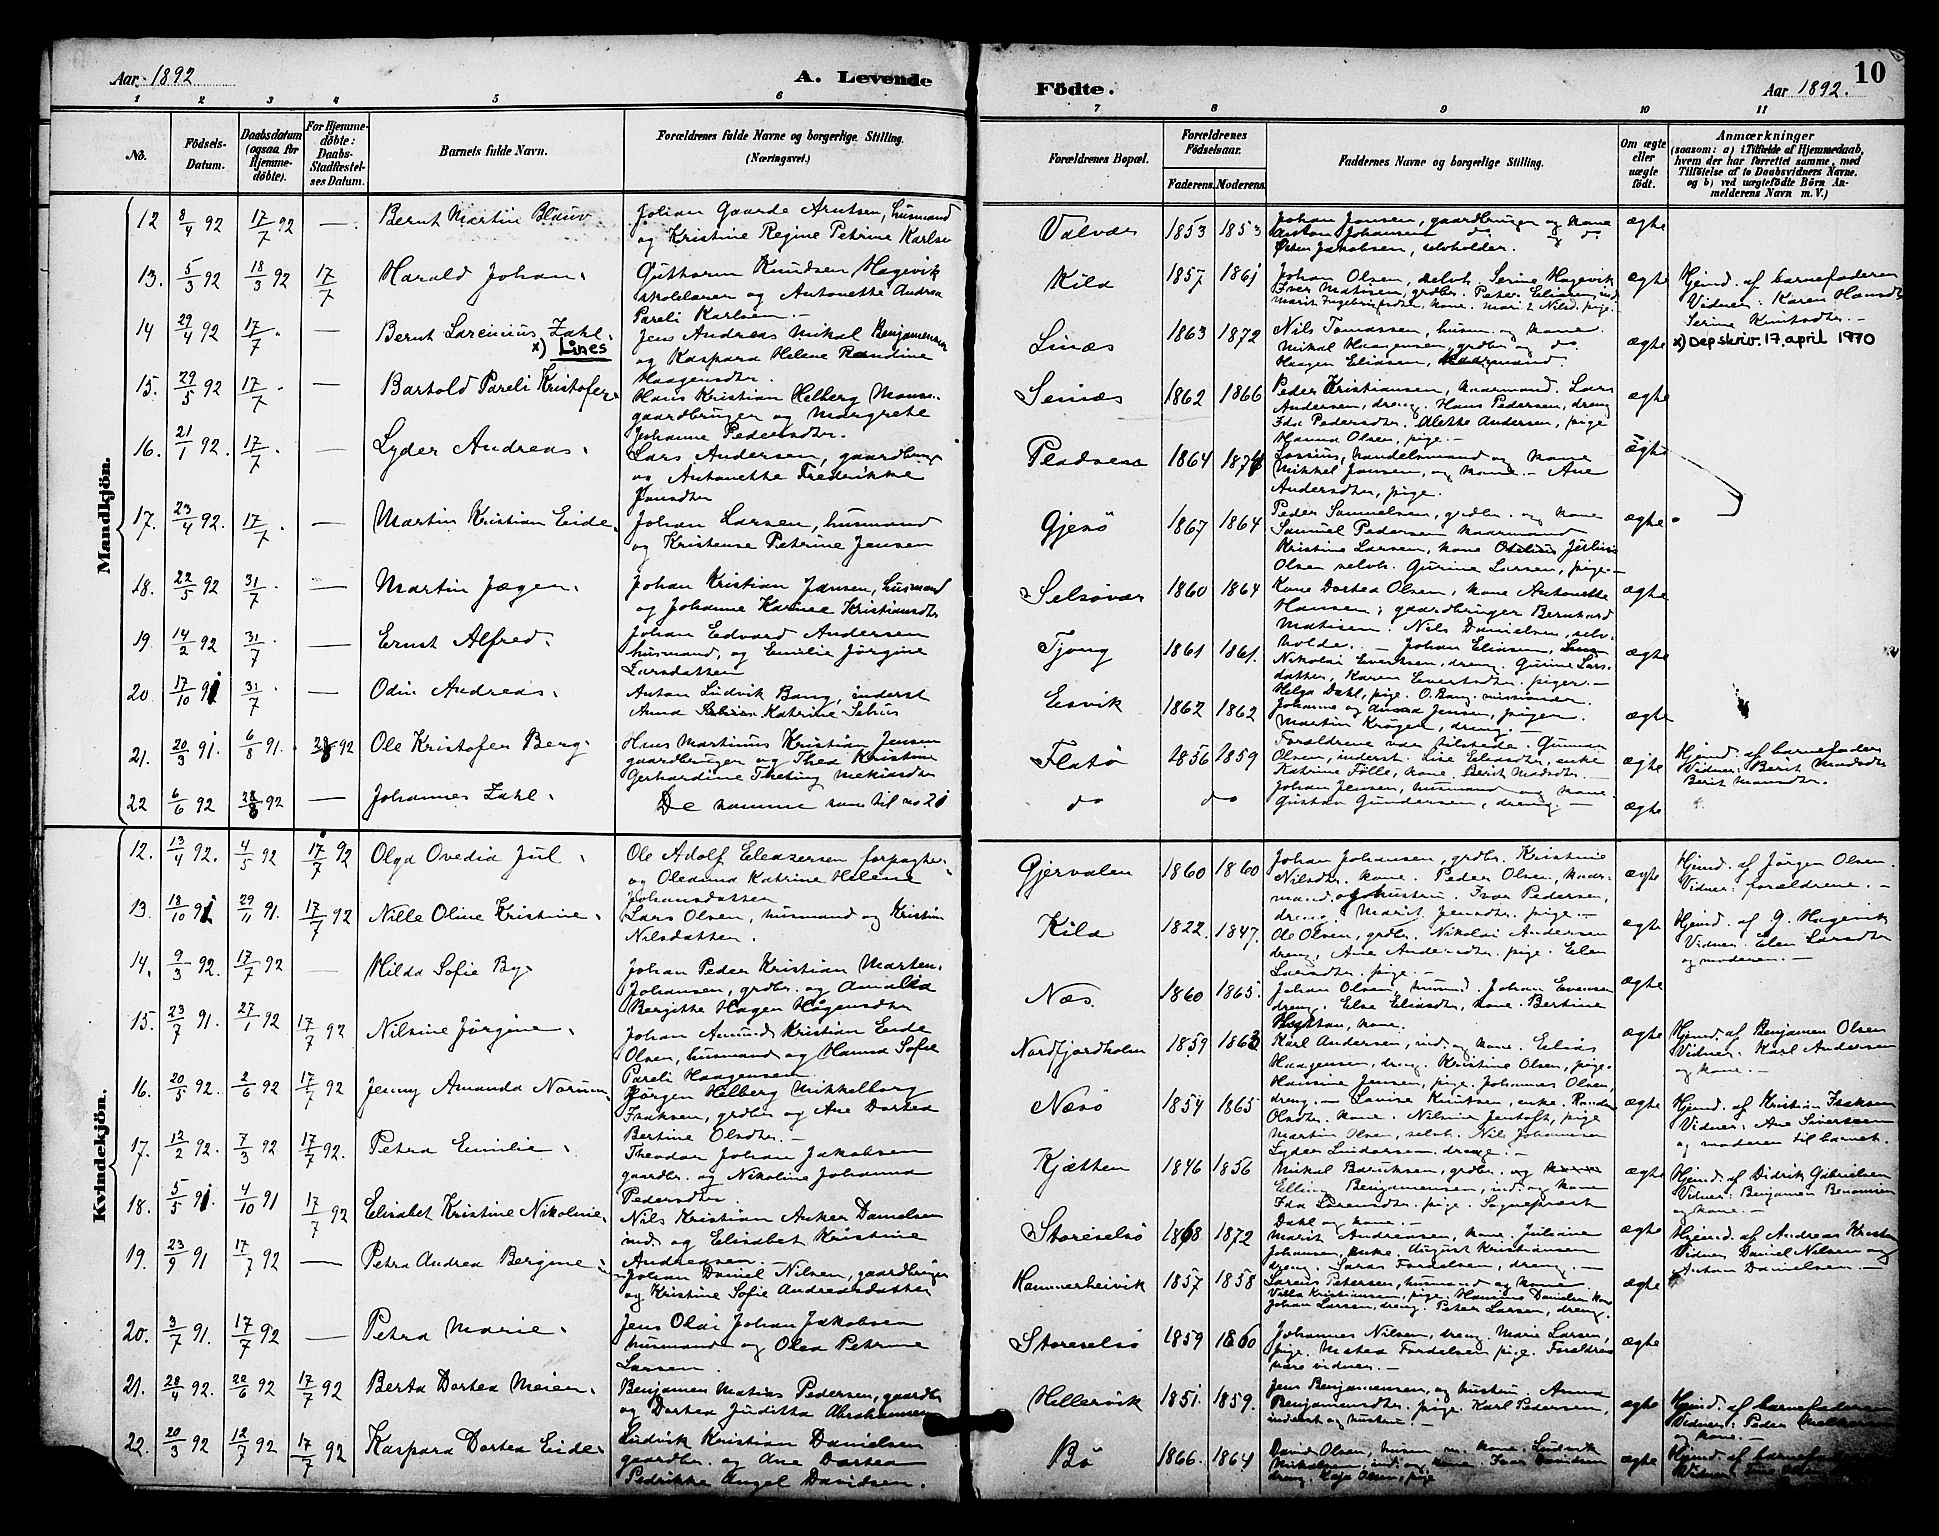 Aar 1892
A. Levende
Födte.
Aar 1892.
10
1 2 3 4 5 6 7 8 9 10 11
No.
Födsels-Datum.
Daabsdatum (ogsaa for Hjemmedöbte).
For Hjemmedöbte: Daabs-Stadfæstelses Datum.
Barnets fulde Navn.
Forældrenes fulde Navne og borgerlige Stilling.
(Næringsvei.)
Forældrenes Bopæl.
Forældrenes Födselsaar.
Faderens. Moderens.
Faddernes Navne og borgerlige Stilling.
Om ægte eller uægte födt.
Anmærkninger
(saasom: a) i Tilfælde af Hjemmedaab, hvem der har forrettet samme, med Tilföielse af to Daabsvidners Navne. og b) ved uægtefödte Börn Anmelderens Navn m. V.)
Mandkjön.
12 8/4 92 17/7 92 — Bernt Martin Blauv
Johan Gaarde Arntsen, husmand
og Kristine Regine Petrine Karls
Valvær 1853 1853
Johan Jansen, gaardbruger og kone
Anton Johansen do og do
Jakobsen, selvholder.
ægte
13. 5/3 92 18/3 92 17/7 Harald Johan.
Guttorm Knudsen Hagevik
skolelærer og Antonette Andrea
Pareli Karlsen. —
Kila 1857 1861
Johan Olsen, selvh. Serine Hagevik
Iver Matisen, grdbr. Peter Eliasen, ind
ægte
Hjemd. af barnefaderen
Vidner: Karen Hansdt
Serine Knutsdtr. —
14 29/4 92 17/7 — Bernt Larenius Zahl.
x) Lines
Jens Andreas Mikal Benjaminsen
og Kaspara Helene Randine
Haagensdtr.
Linæs 1863 1872
Nils Tomassen, husm. og kone.
Mikal Haagensen, grdbr og do.
Haagen Eliasen,
ægte
x) Depskriv. 17. april 1970
15. 29/5 92 17/7 — Bartold Pareli Kristofer
Hans Kristian Helberg Monse
gaardbruger og Margrete
Johanne Pedersdtr.
Seinæs 1862 1866
Peder Kristiansen, kaarmand. Lars
Andersen, dreng. Hans Pedersen, dreng
Ida Pedersdtr. Alette Andersen, pige
Hanna Olsen, pige. —
ægte
16. 21/1 92. 17/7 — Lyder Andreas.
Lars Andersen, gaardbrug
og Antonette Frederikke
Jonsdtr
Pladsen 1864 1874
handelsmand og kone
Mikkel Jansen, og kone. — Ane
Andersdtr, pige.
ægte
17. 23/4 92. 17/7 — Martin Kristian Eide.
Johan Larsen, husmand
og Kristense Petrine Jensen
Gjesö 1867 1864
Peder Samuelsen, grdbr. og kone
Samuel Pedersen kaarmand
Kristine Larsen, kone
Olsen selvh. Gurine Larsen, pige —
ægte
18. 22/5 92 31/7 — Martin Jægen.
Johan Kristian Jansen, husmand
og Johanne Karine Kristiansdtr
Selsövær 1860 1864
Kone Dortea Olsen, kone Antonette
Hansen; gaardbruger Bernhard
Matisen. Nils Danielsen, selv-
ægte
19. 14/2 92 31/7 — Ernst Alfred.
Johan Edvard Andersen
husmand, og Emilie Jörgine
Larsdatter
Tjong 1861 1861.
holde. — Johan Eliasen,
Nikolai Evertsen, dreng. Gurine Lars-
datter, Karen Evertsdtr. piger. —
ægte
20 17/10 91 31/7 — Odin Andreas.
Anton Ludvik Bang, inderst
Anna Katrine Selius
Esvik 1862 1862
Helga Dahl, pige. O. Bang. missionær
Johanne og Jensen, pigen.
Martin Krogen, dreng. —
ægte
21. 20/3 91. 6/8 91. 92 Ole Kristofer Berg.
Hans Martinus Kristian Jensen
gaardbruger og Thea Kristine
Gerhardine
Flatö 1856 1859
Forældrene var tilstede. Gunnar
Olsen, inderst. Lise Eliasdtr, enke
Katrine Fölle, kone, Berit Madsdtr. —
ægte
Hjemd. af barnefader
Vidner: Berit Madsdtr
Berit Monsdtr.
22 6/6 92 28/8 92 — Johannes Zahl.
De samme som til no 21
do do
Johan Jensen, husmand og kone.
Gustav Gundersen, dreng. —
ægte
Kvindekjön.
12. 13/4 92. 4/5 92 17/7 92 Olga Ovedia Jul.
Ole Adolf Eleazersen forpagter.
og Oleanna Katrine Helene
Johansdatter
Gjervalen 1860 1860
Johan Johansen, grdbr. Kristine
Nilsdtr. kone. Peder Olsen, kaar-
mand og hustru. Ivar Pedersen,
dreng. Marit Jensdtr. pige. —
ægte
Hjemd. af Jörgen Olsen.
Vidner: forældrene. —
13. 18/10 91 29/11 91. 17/7 92 Nille Oline Kristine.
Lars Olsen, husmand og Kristin
Nilsdatter.
Kila 1822. 1847.
Ole Olsen, grdbr. Nikolai Andersen
dreng, Ane Andersdtr. pige. Elen
Larsdtr. pige. —
ægte
Hjemd. af G. Hagevik
Vidner: Elen Larsdtr
og moderen. —
14. 9/3 92. 17/7 92 — Hilda Sofie By.
Johan Peder Kristian Marten.
Johansen, grdbr. og Amalia
Bergitte Hagen Hågensdtr
Næs. 1860 1865.
Johan Olsen, husmd. Johan Evensen
dreng. Else Eliasdtr, kone. Bertine
kone.
ægte
15. 23/7 91. 27/1 92 17/7 92 Nilsine Jörgine.
Johan Amund Kristian Eide
Olsen, husmand og Hanna Sofie
Pareli Haagensen.
Nordfjordholm 1859 1863
Karl Andersen, ind. og kone. Elias
Haagensen, dreng. Kristine Olsen, pige.
Hansine Jensen, pige. Johannes Olsen,
ægte
Hjemd. af Benjamen Olsen
Vidner: Karl Andersen
og kone. —
16. 20/5 92. 2/6 92 17/7 92 Jenny Amanda Norum
Jörgen Helberg Mikkelborg
Isaksen, grdbr og Ane Dortea
Bertine Olsdtr. —
Næsö 1854 1865
dreng. — Lovise Knutsen, enke.
Olsdtr. kone. Nilsine Jentoft, pige
ægte
Hjemd. af Kristian Isaksen
Vidner: Ane Sivertsen
og moderen til barnet.
17. 12/2 92. 7/3 92 17/7 92. Petra Emilie.
Theodor Johan Jakobsen
gaardbr. og Nikoline Johanna
Pedersdtr.
Kjætten 1846 1856
Martin Olsen, selvh. Nils Johannesen
Lyder Lindersen dreng. —
Mikal Bariksen, grdbr.
ægte
Hjemd. af Didrik Gabrielsen
Vidner: Benjamen
og kone. —
18. 5/5 91. 4/10 91 17/7 92 Elisabet Kristine Nikoline.
Nils Kristian Anker Danielsen
ind. og Elisabet Kristine
Andreasen. —
Storeselsö 1868 1872
Elling Benjamensen, ind. og kone
Ida Larensdtr. pige. Sogneprest
Dahl og kone. —
ægte
Hjemd. af Andreas Kristen
Vidner Daniel Nilsen og
Anton Danielsen. —
19. 23/9 91 17/7 92 — Petra Andrea Bergine.
Johan Daniel Nilsen, gaardbruger
og Kristine Sofie Andreasdatter
Hammarheivik 1857 1858
Marit Andreasen, kone. Juliane
Johansen, enke. August Kristiansen
dreng. Fordelsen, dreng. —
ægte
20. 3/7 91. 17/7 92 — Petra Marie.
Jens Olai Johan Jakobsen
husmand og Olea Petrine
Larsen.
Storeselsö 1859 1860
Larents Petersen, husmand og kone
Villa Kristiansen, pige. Hansine Danielsen kone
Johan Larsen, dreng. Peter Larsen, dreng
Johannes Nilsen, dreng. Marie Larsen,
pige. Fordelsen pige. Forældrene
vidner. —
ægte
21. 28/4 92. 22/6 92 17/7 92 Berta Dortea Meier.
Benjamen Matias Pedersen, gaardbr
og Dortea Juditta Abrahamsen
Hellervik 1851. 1859.
Jens Benjamensen, og hustru. Anna
Benjamensdtr. pige. Karl Pedersen,
inderst og hustru —
ægte
Hjemd. af barnefaderen
Vidner: Peder
og kone. —
22. 20/3 92 12/7 92 17/7 92 Kaspara Dortea Eide.
Ludvik Kristian Danielsen
gaardbr. og Ane Dortea
Pedrikke Angel Davidsen.
Bö 1866. 1864
David Olsen, husm. m. kone. Ludvik
Mikalsen, ind. og kone. Ivar Davidsen
dreng. Kaja Olsen, pige
ægte
Hjemd. af
Vidner: